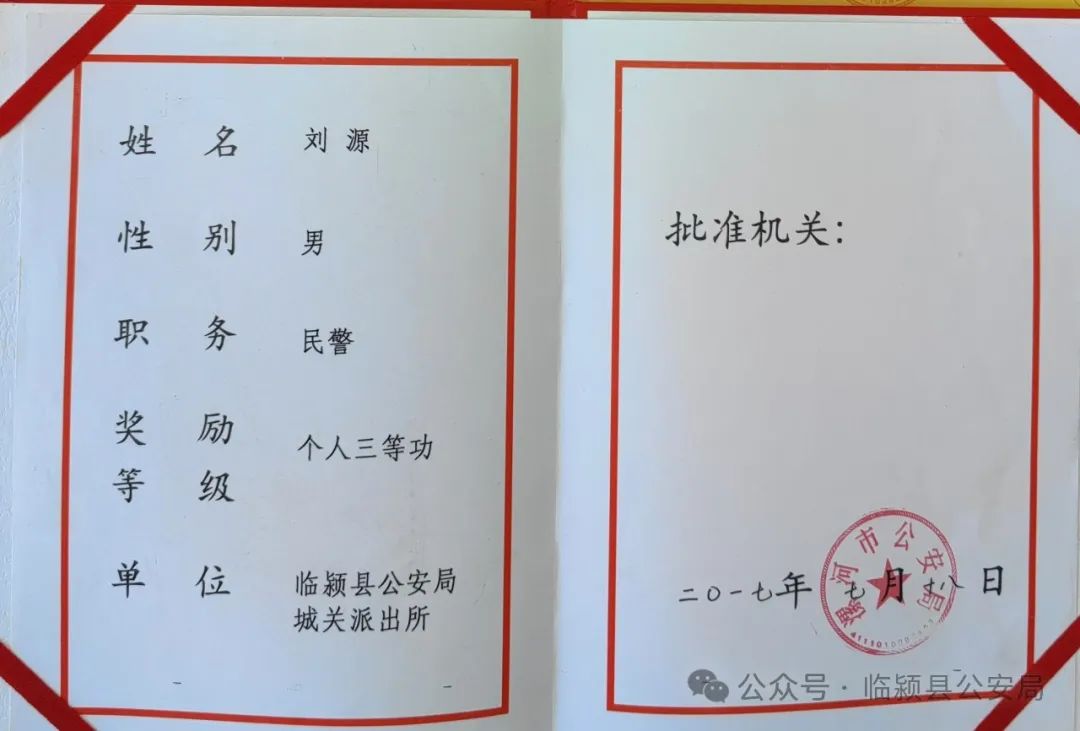 姓名 刘源
性别 男
职务 民警
奖励等级 个人三等功
单位 临颍县公安局
城关派出所
批准机关：
漯河市公安局
二〇一七年七月十八日
公众号·临颍县公安局